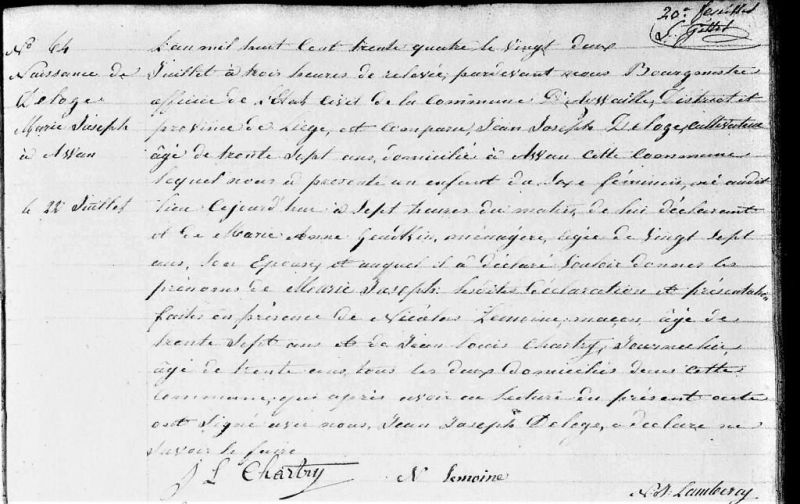 20e feuillet
N° 64
Naissance de
Deloge
Marie Joseph
à Awan
le 22 Juillet
L'an mil huit cent trente quatre le vingt deux
Juillet à trois heures de relevée, pardevant nous Bourgmestre
officier de l'État civil de la commune D'Aywaille, District et
province de Liège, est comparu, Jean Joseph Deloge, cultivateur
âgé de trente sept ans, domicilié à Awan cette commune
lequel nous à présenté un enfant du sexe féminin, né audit
lieu cejourd'hui à sept heures du matin, de lui déclarant
et de Marie Anne ménagère, âgée de vingt sept
ans, son Epouse, et auquel il à déclaré vouloir donner les
prénoms de Marie Joseph: lesdites déclaration et présentation
faites en présence de Nicolas Lemoine, maçon, âgé de
trente sept ans et de Jean Louis Charlry, Journalier,
âgé de trente ans, tous les deux domiciliés dans cette
commune, qui après avoir eu lecture du présent acte
ont signé avec nous, Jean Joseph Deloge, a déclaré ne
savoir le faire
J L Charlry N Lemoine